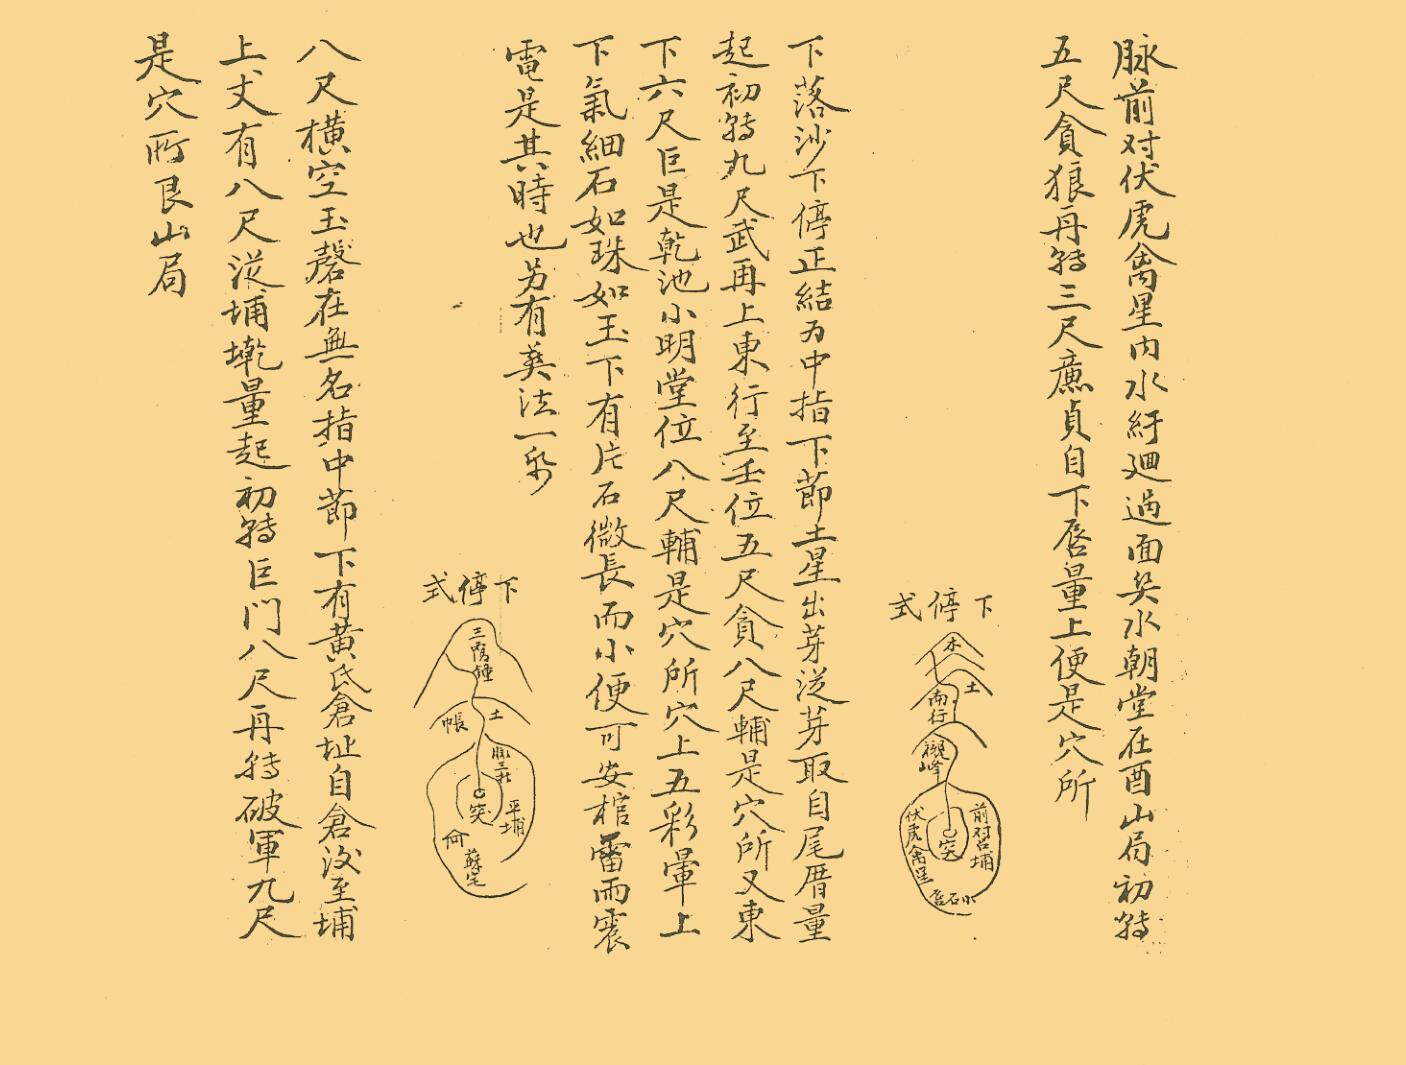 脉前对伏虎禽星内水紆廻過面矣水朝堂在酉山局初轉
五尺貪狼再轉三尺廉貞自下唇量上便是穴所
下停式
木
土
南行
襯峰
突
前習埔
伏虎禽星
小石唇
下落沙下停正結为中指下節土星出芽從芽取自尾厝量
起初轉九尺武再上東行至壬位五尺貪八尺輔是穴所又東
下六尺巨是乾池小明堂位八尺輔是穴所穴上五彩暈上
下氣細石如珠如玉下有片石微長而小便可安棺雷雨震
電是其時也另有葬法一
下停式
三
土
帳
突
平埔
蘇宅
八尺横空玉磬在無名指中節下有黄氏倉址自倉後至埔
上丈有八尺從埔墘量起初轉巨门八尺再轉破軍九尺
是穴所艮山局